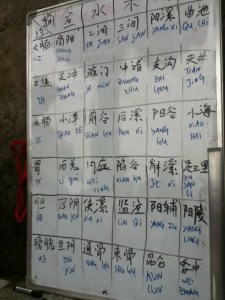 水 木
大肠 商阳 二间 三间 阳溪 曲池
ER JIAN SAN JIAN YANG XI QU CHI
三焦 关冲 液门 中渚 支沟 天井
YE MEN ZHONG ZHU ZHI GOU TIAN JING
小肠 少泽 前谷 后溪 阳谷 小海
SHAO ZE QIAN GU HOU XI YANG GU XIAO HAI
胃 厉兑 内庭 陷谷 解溪 足三里
LI DUI NEI TING XIAN GU JIE XI
胆 窍阴 侠溪 临泣 阳辅 阳陵
QIAO YIN XIA XI LIN QI YANG FU YANG LING
膀胱 至阴 通谷 束骨 昆仑 委中
ZHI YIN TONG GU SHU GU KUN LUN WEI ZHONG